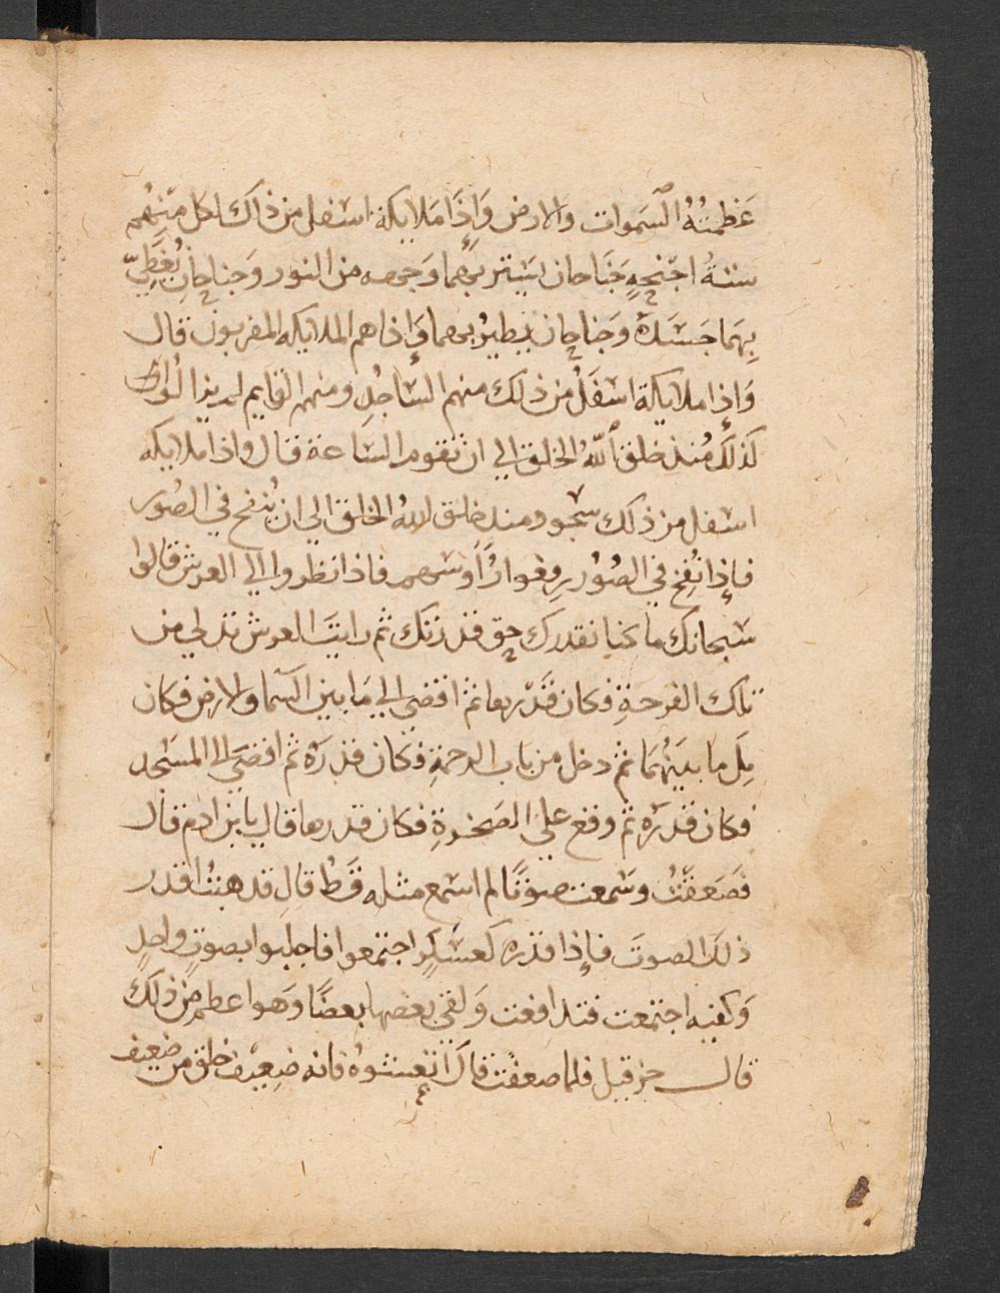 عَظَمَتُهُ السَّموات والارض وَإِذَا مَلايكة اسفل من ذاك لكل مِنهُم
ستةُ اجْنِحةٍ جَنَاحان يستتر بهما وَجهه من النور وَجناحانِ يُغَطِّيّ
بِهَما جَسَدَهُ وَجناحان يطيرُ بهما وَإذا هم الملايكه المقربون قال
وَإِذا ملايكة اسفَلُ من ذلك منهم السَّاجِدِ ومنهم القايم لم يزالُوا
كذلكَ مُنذ خلق اللّهُ الخلق الي ان تقوم الساعة قال واذا ملايكه
اسفل من ذلك سجود منذ خلق اللهُ الخلق الي ان يُنفخ في الصُور
فإذا نُفِخ في الصُوْر رفعوا رُاوسهم فاذا نظروا الي العرش قالوا
سبحانك ما كنا نقدرك حق قدرتك ثم رايتَ العرش تدلي من
تلك الفرجةِ فكان قَدْرها ثم افضى الي مَا بين السّما والارض فكان
مِلَ ما بينهُمَا ثم دخل من باب الرحمةِ فكان قدرَهُ ثم افضَي الا المسَجد
فكان قدرَهُ ثم وقع على الصَخرةِ فكان قدرها قال يا بن ادم قال
فَصَعقْتُ وسَمعت صوْتًا لم اسمع مثله قَطُ قال قدهبتُ اقدر
ذلكَ الصوتَ فإذا قدره كعسْكرٍ اجتمعوا فاجلبوا بصوتٍ واحدٍ
وَكفيه اجتمعت فتدافعت وَلقي بعضها بعضًا وَهوا عظم من ذلك
قال حزقيل فلما صعقت قالَ انعشوهُ فانه ضعِيْف خلق من ضعيف